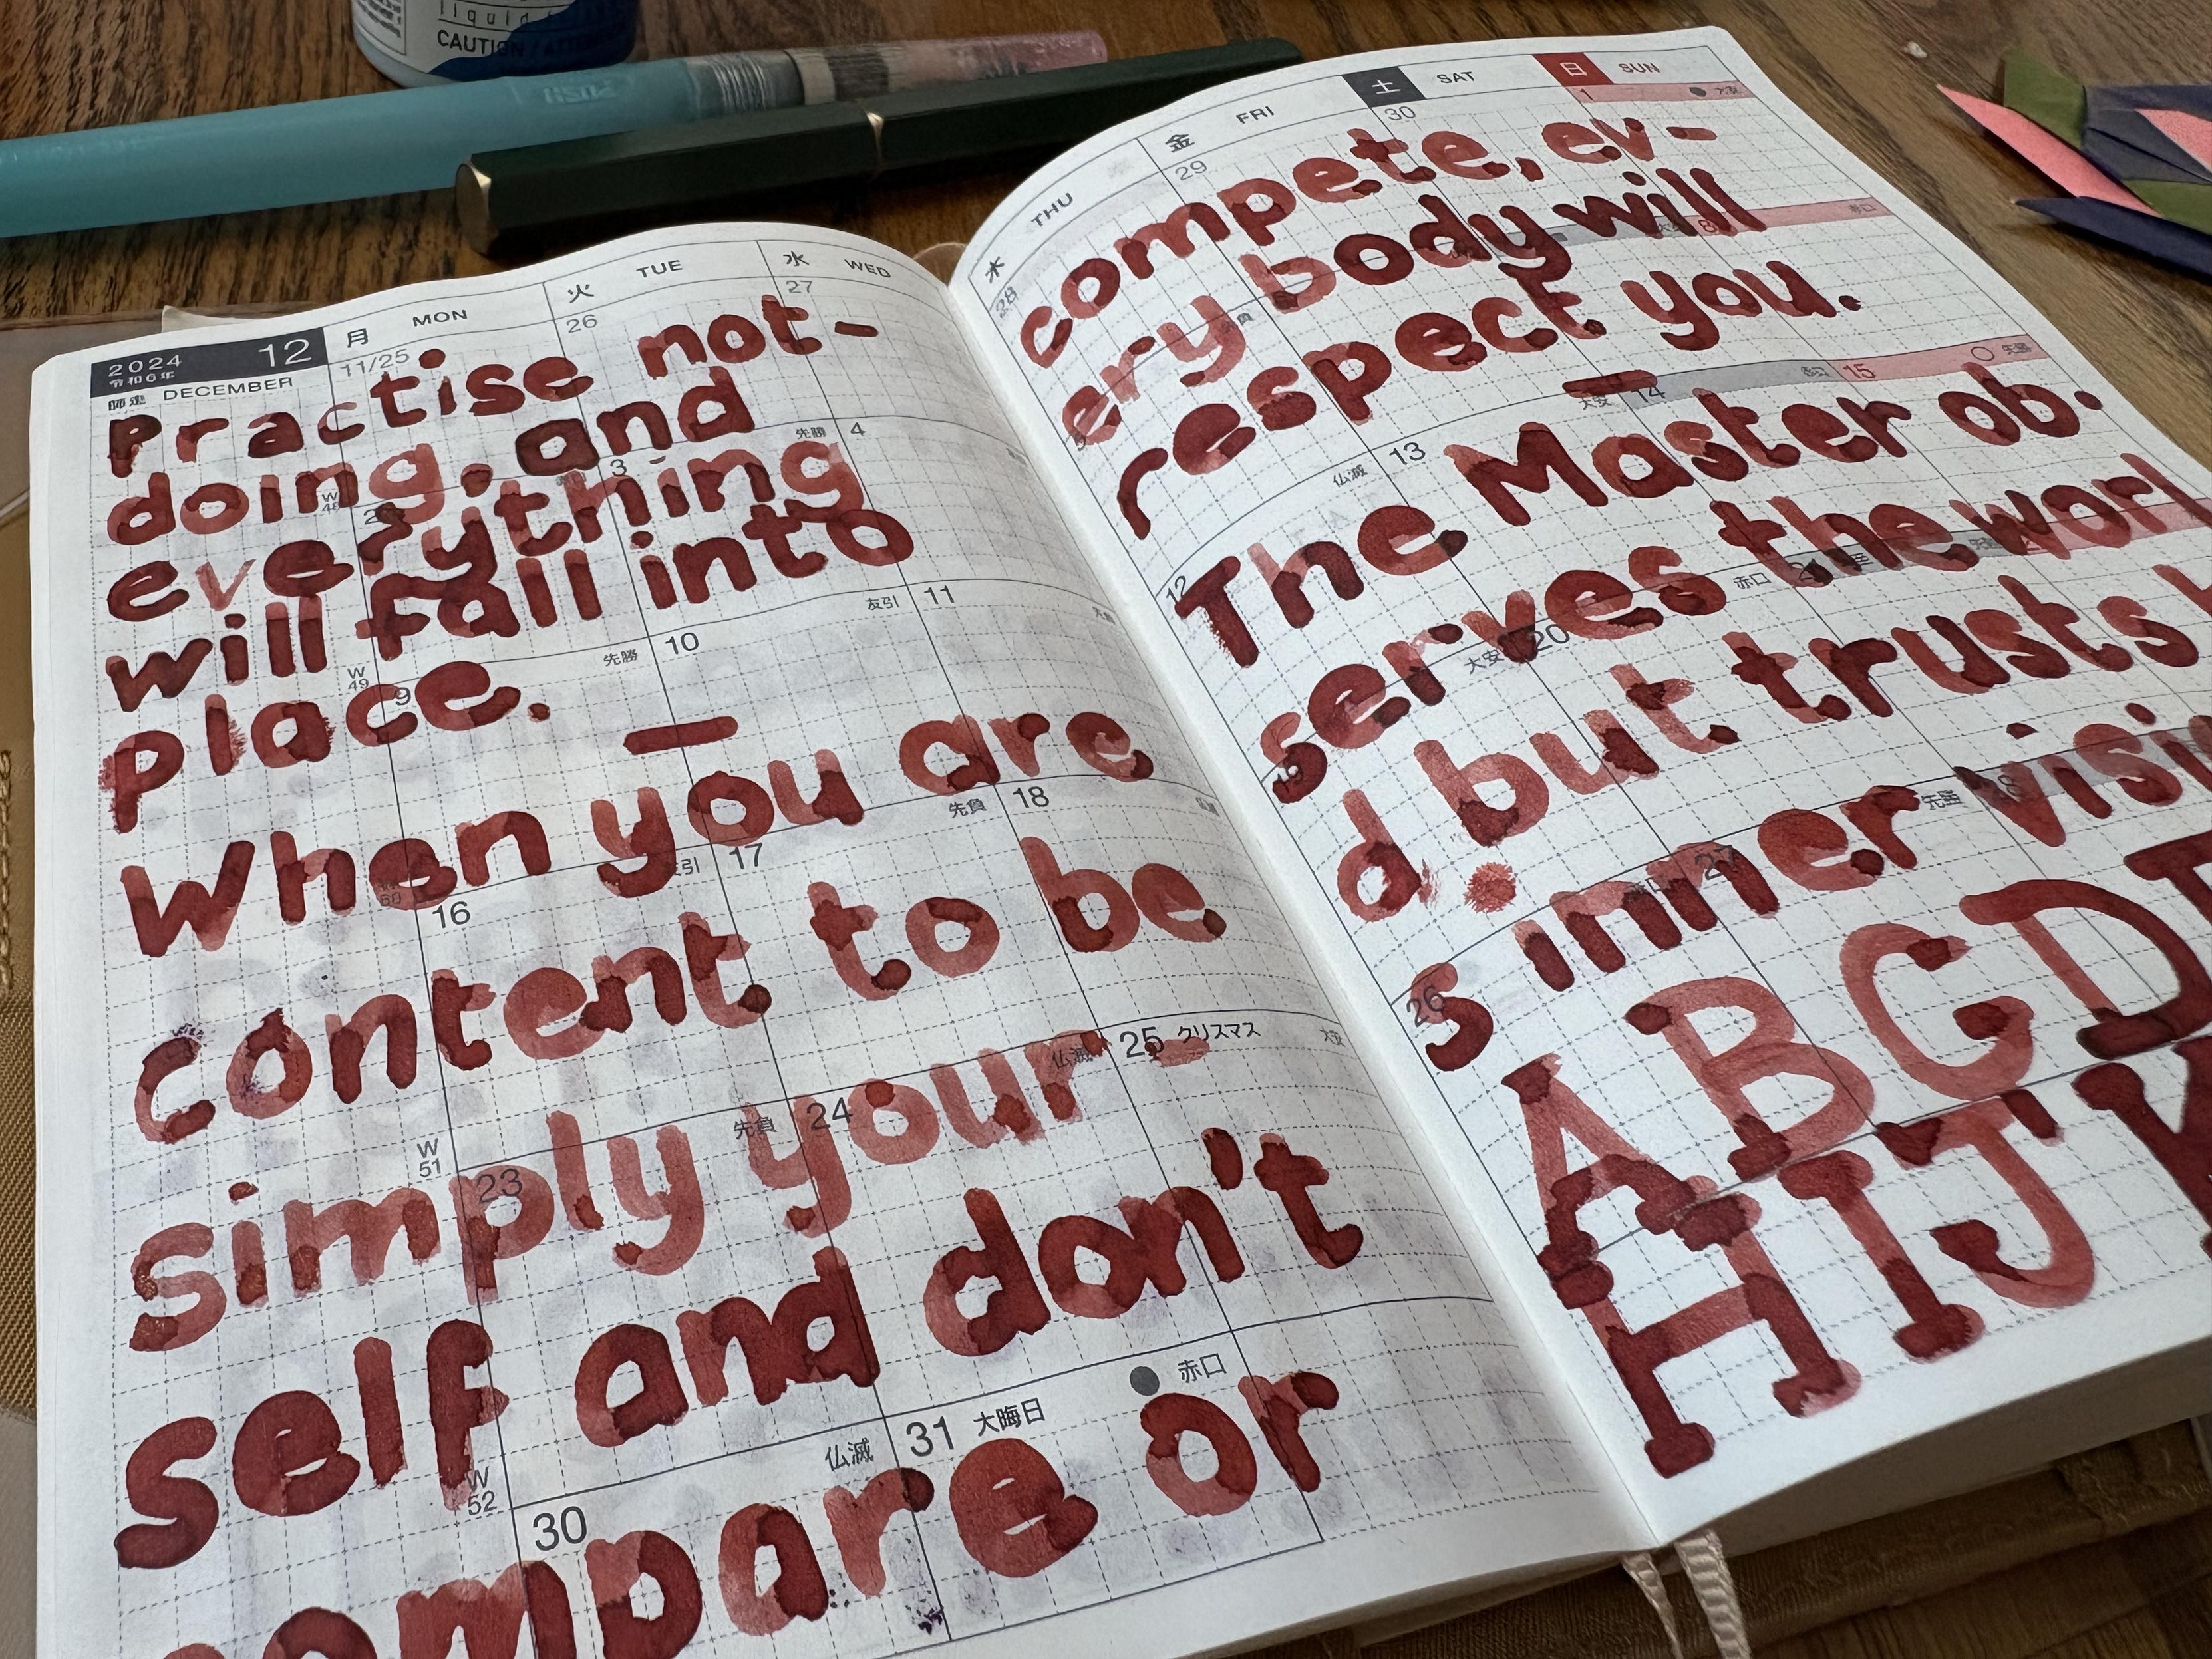 liquid
CAUTION
2024
12
令和6年
師走 DECEMBER
月 MON
火 TUE
水 WED
11/25
26
27
Practise not-
doing, and
everything
will fall into
place.
—
When you are
content to be
simply your-
self and don't
compare or
3
先勝
4
W
49
9
先勝
10
友引
11
16
17
先負
18
W
51
23
先負
24
仏滅
25 クリスマス
W
52
30
仏滅
31 大晦日
赤口
木 THU
金 FRI
土 SAT
日 SUN
28
29
30
1
compete, ev-
ery body will
respect you.
—
The Master ob.
serves the worl
d but trusts h
s inner visio
A B C D
H I J K
8
赤口
12
仏滅
13
大安
14
赤口
15
先勝
大安
20
赤口
26
27
先勝